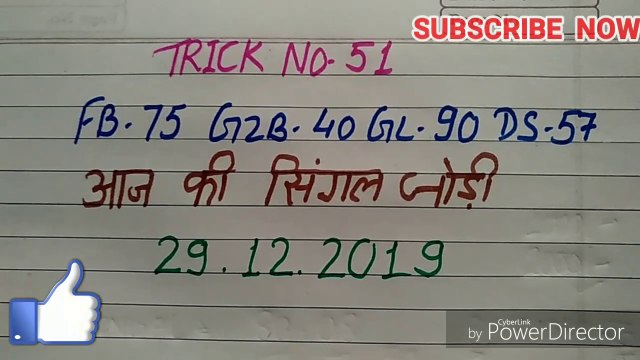 SUBSCRIBE NOW
TRICK NO. 51
FB. 75 GZB. 40 GL. 90 DS-57
आज की सिंगल जोड़ी
29.12.2019
CyberLink
by PowerDirector